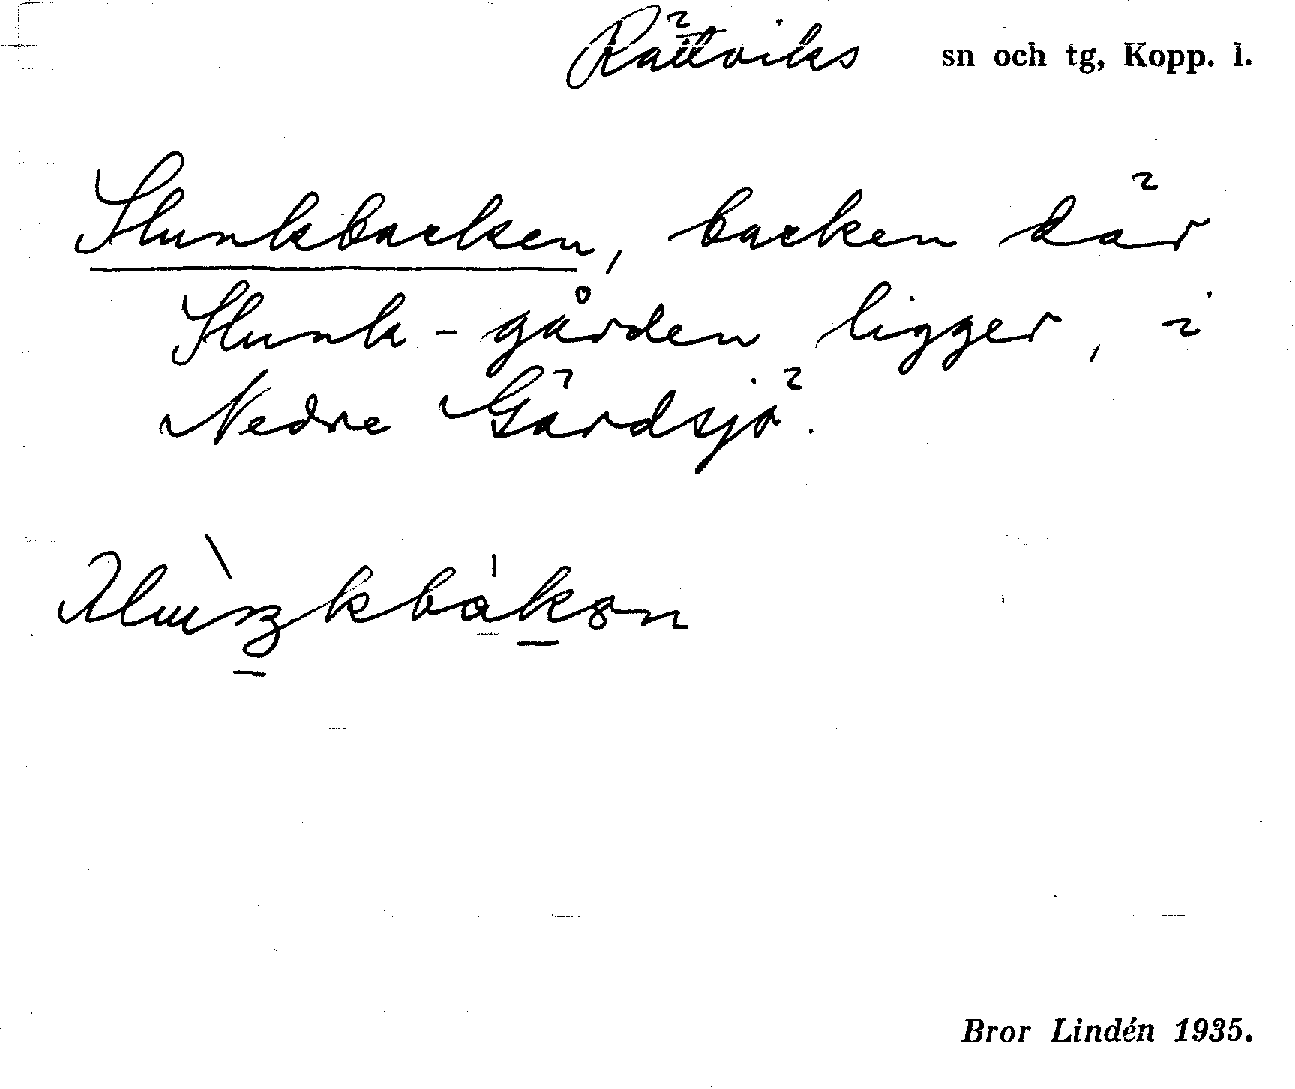 Rättviks sn och tg, Kopp. l.
Slunkbacken, backen där
Slunk-gården ligger, i
Nedre Gärdsjö.
Bror Lindén 1935.